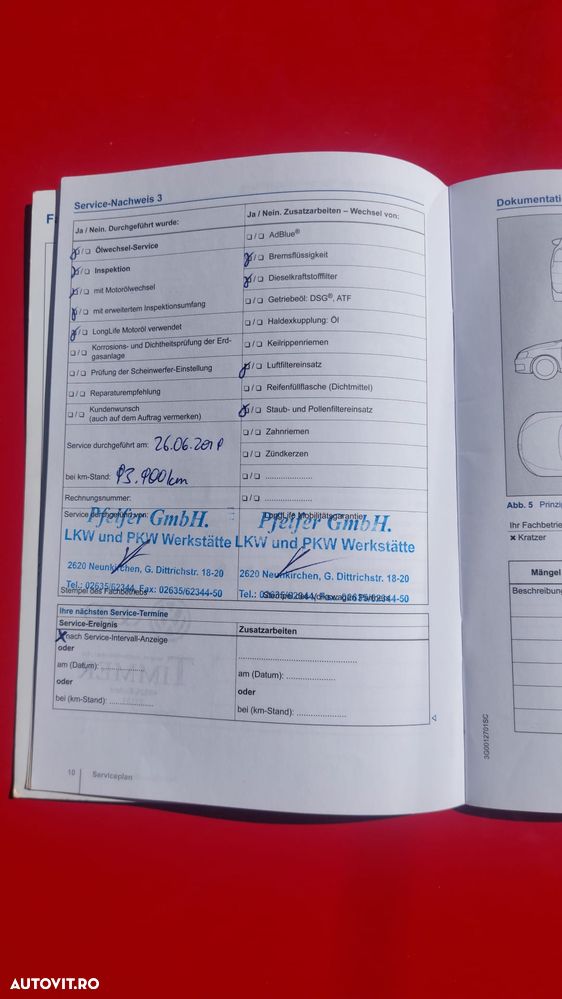 Service-Nachweis 3
Ja / Nein. Durchgeführt wurde:
Ja / Nein. Zusatzarbeiten – Wechsel von:
❏ / ❏ Ölwechsel-Service
❏ / ❏ AdBlue®
❏ / ❏ Inspektion
❏ / ❏ Bremsflüssigkeit
❏ / ❏ mit Motorölwechsel
❏ / ❏ Dieselkraftstofffilter
❏ / ❏ mit erweitertem Inspektionsumfang
❏ / ❏ Getriebeöl: DSG®, ATF
❏ / ❏ LongLife Motoröl verwendet
❏ / ❏ Haldexkupplung: Öl
❏ / ❏ Korrosions- und Dichtheitsprüfung der Erd-
gasanlage
❏ / ❏ Keilrippenriemen
❏ / ❏ Prüfung der Scheinwerfer-Einstellung
❏ / ❏ Luftfiltereinsatz
❏ / ❏ Reparaturempfehlung
❏ / ❏ Reifenfüllflasche (Dichtmittel)
❏ / ❏ Kundenwunsch
(auch auf dem Auftrag vermerken)
❏ / ❏ Staub- und Pollenfiltereinsatz
❏ / ❏ Zahnriemen
Service durchgeführt am: 26.06.201
❏ / ❏ Zündkerzen
bei km-Stand: 93.900km
❏ / ❏ ......................
Rechnungsnummer:
❏ / ❏ ......................
Service durchgeführt von:
LongLife Mobilitätsgarantie
Pfeifer GmbH.
LKW und PKW Werkstätte
2620 Neunkirchen, G. Dittrichstr. 18-20
Tel.: 02635/62344, Fax: 02635/62344-50
Pfeifer GmbH.
LKW und PKW Werkstätte
2620 Neunkirchen, G. Dittrichstr. 18-20
Tel.: 02635/62344, Fax: 02635/62344-50
Stempel des Fachbetriebs
Stempel des Volkswagen Partners
Ihre nächsten Service-Termine
Service-Ereignis
Zusatzarbeiten
X nach Service-Intervall-Anzeige
oder
am (Datum): ................
am (Datum): ................
oder
oder
bei (km-Stand): ................
bei (km-Stand): ................
10 Serviceplan
Abb. 5 Prinzi
Ihr Fachbetrie
✖ Kratzer
Mängel
Beschreibung
3G0012701SC
Dokumentati
TIMMER
AUTOVIT.RO